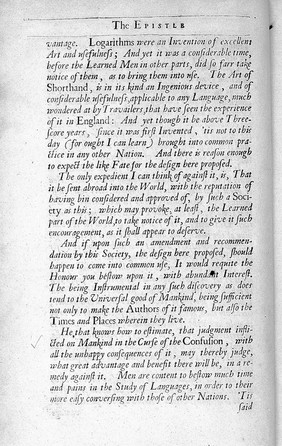 The EPISTLE
vantage. Logarithms were an Invention of excellent
Art and usefulness; And yet it was a considerable time,
before the Learned Men in other parts, did so farr take
notice of them, as to bring them into use. The Art of
Shorthand, is in its kind an Ingenious device, and of
considerable usefulness, applicable to any Language, much
wondered at by Travailers, that have seen the experience
of it in England: And yet though it be above Three-
score years, since it was first Invented, 'tis not to this
day (for ought I can learn) brought into common pra-
ctice in any other Nation. And there is reason enough
to expect the like Fate for the design here proposed.
The only expedient I can think of against it, is, That
it be sent abroad into the World, with the reputation of
having bin considered and approved of, by such a Soci-
ety as this; which may provoke, at least, the Learned
part of the World, to take notice of it, and to give it such
encouragement, as it shall appear to deserve.
And if upon such an amendment and recommen-
dation by this Society, the design here proposed, should
happen to come into common use, It would requite the
Honour you bestow upon it, with abundant Interest.
The being Instrumental in any such discovery as does
tend to the Universal good of Mankind, being sufficient
not only to make the Authors of it famous, but also the
Times and Places wherein they live.
He, that knows how to estimate, that judgment infli-
cted on Mankind in the Curse of the Confusion, with
all the unhappy consequences of it, may thereby judge,
what great advantage and benefit there will be, in a re-
medy against it. Men are content to bestow much time
and pains in the Study of Languages, in order to their
more easy conversing with those of other Nations. 'Tis
said